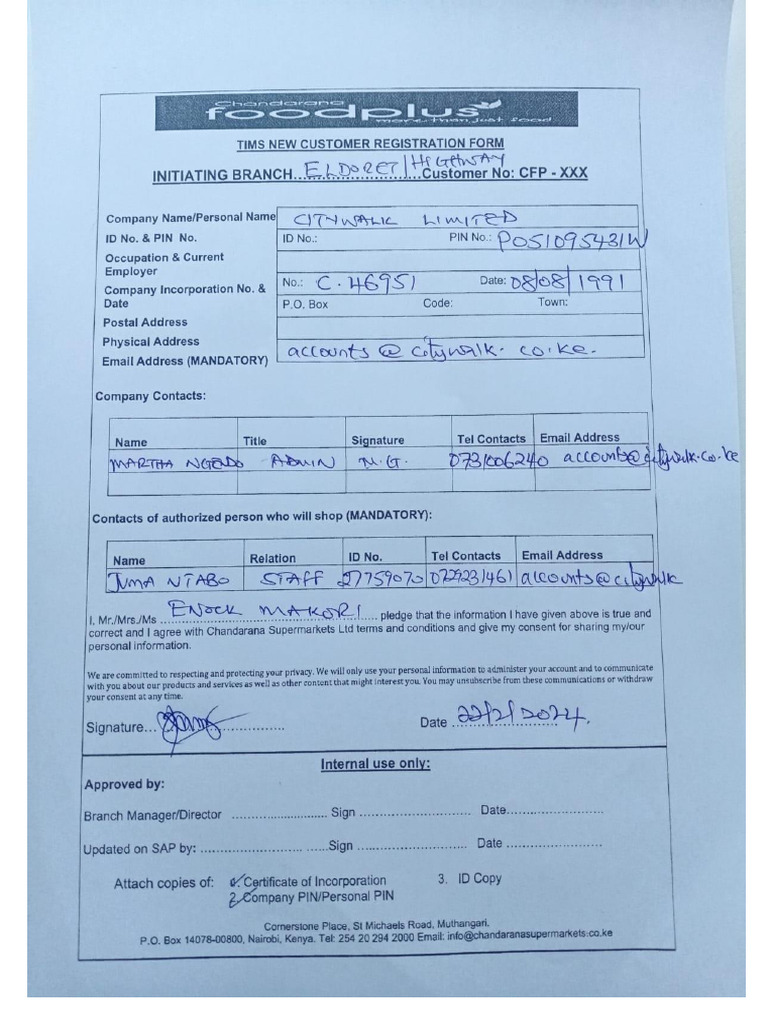 Chandarana
foodplus
more than just food
TIMS NEW CUSTOMER REGISTRATION FORM
INITIATING BRANCH...ELDORET/HIGHWAY...Customer No: CFP - XXX
Company Name/Personal Name CITYWALK LIMITED
ID No. & PIN No. ID No.: PIN No.: P051095431W
Occupation & Current
Employer
Company Incorporation No. & Date No.: C.46951 Date: 08/08/1991
Postal Address P.O. Box Code: Town:
Physical Address
Email Address (MANDATORY) accounts@citywalk.co.ke.
Company Contacts:
Name Title Signature Tel Contacts Email Address
MARTHA NGENDO ADMIN M.G. 0731006240 accounts@citywalk.co.ke
Contacts of authorized person who will shop (MANDATORY):
Name Relation ID No. Tel Contacts Email Address
JUMA NTABO STAFF 27759070 0729231461 accounts@citywalk
I. Mr./Mrs./Ms ....ENOCK MAKORI.... pledge that the information I have given above is true and
correct and I agree with Chandarana Supermarkets Ltd terms and conditions and give my consent for sharing my/our
personal information.
We are committed to respecting and protecting your privacy. We will only use your personal information to administer your account and to communicate
with you about our products and services as well as other content that might interest you. You may unsubscribe from these communications or withdraw
your consent at any time.
Signature.................. Date 22/2/2024.
Internal use only:
Approved by:
Branch Manager/Director ............................ Sign ................................ Date............................
Updated on SAP by: .................................... Sign ................................ Date ............................
Attach copies of: 1. Certificate of Incorporation 3. ID Copy
2. Company PIN/Personal PIN
Cornerstone Place, St Michaels Road, Muthangari.
P.O. Box 14078-00800, Nairobi, Kenya. Tel: 254 20 294 2000 Email: info@chandaranasupermarkets.co.ke